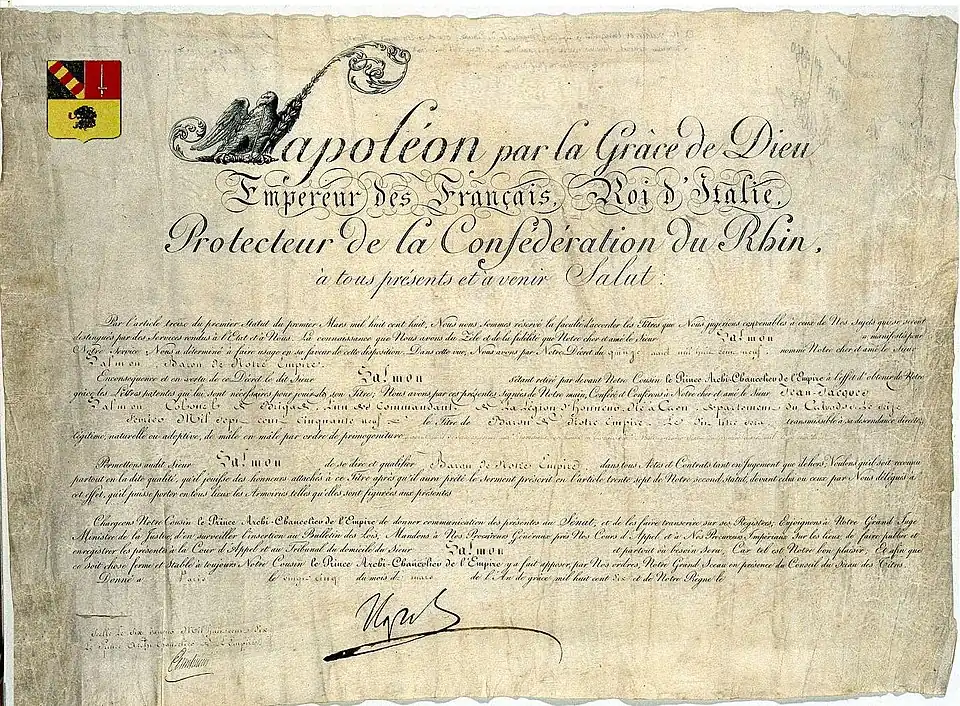 Napoléon par la Grâce de Dieu
Empereur des Français, Roi d'Italie,
Protecteur de la Confédération du Rhin,
à tous présents et à venir Salut:
Par l'article treize du premier Statut du premier Mars mil huit cent huit, Nous nous sommes réservé la faculté d'accorder les Titres que Nous jugerions convenables à ceux de Nos Sujets qui se seront
distingués par des Services rendus à l'État et à Nous. La connaissance que Nous avons du Zèle et de la fidélité que Notre cher et amé le Sieur Salmon a manifestés pour
Notre Service, Nous a déterminé à faire usage en sa faveur de cette disposition. Dans cette vue, Nous avons par Notre Décret du quinze août mil huit cent neuf, nommé Notre cher et amé le Sieur
Salmon, Baron de Notre Empire.
En conséquence et en vertu de ce Décret le dit Sieur Salmon s'étant retiré par devant Notre Cousin le Prince Archi-Chancelier de l'Empire à l'effet d'obtenir de Notre
grâce les Lettres patentes qui lui sont nécessaires pour jouir de son Titre; Nous avons par ces présentes Signées de Notre main, Conféré et Conférons à Notre cher et amé le Sieur Jean Jacques
Salmon, l'un des Commandants de La Légion d'honneur, Né à Département du Calvados le
Janvier Mil Sept cent Cinquante neuf le Titre de Baron de Notre Empire. Le dit titre sera transmissible à sa descendance directe,
légitime, naturelle ou adoptive, de mâle en mâle par ordre de primogéniture
Permettons audit Sieur Salmon de se dire et qualifier Baron de Notre Empire dans tous Actes et Contrats tant en Jugement que dehors; Voulons qu'il soit reconnu
partout en la dite qualité, qu'il jouisse des honneurs attachés à ce Titre après qu'il aura prêté le Serment prescrit en l'article trente sept de Notre second statut, devant celui ou ceux par Nous délégués à
cet effet, qu'il puisse porter en tous lieux les Armoiries telles qu'elles sont figurées aux présentes
Chargeons Notre Cousin le Prince Archi-Chancelier de l'Empire de donner communication des présentes au Sénat, et de les faire transcrire sur ses Registres, Enjoignons à Notre Grand Juge
Ministre de la Justice, d'en surveiller l'insertion au Bulletin des Lois, Mandons à Nos Procureurs Généraux près Nos Cours d'Appel et à Nos Procureurs Impériaux Sur les lieux de faire publier et
enregistrer les présentes à la Cour d'Appel et au Tribunal du domicile du Sieur Salmon et partout où besoin sera, Car tel est Notre bon plaisir; Et afin que
ce soit chose ferme et stable à toujours Notre Cousin le Prince Archi-Chancelier de l'Empire y a fait apposer, par Nos ordres, Notre Grand Sceau en présence du Conseil du Sceau des Titres.
Donné à Paris le vingt cinq du mois de mars de l'An de grâce mil huit cent dix et de Notre Règne le
Le Prince Archi-Chancelier de l'Empire